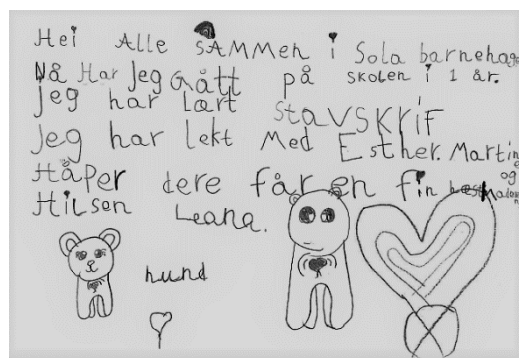 Hei Alle sAMMen i Sola barnehage
Nå Har Jeg Gått på skolen i 1 år.
Jeg har lært STAVSKRIF
Jeg har lekt Med Esther. Martine og
HÅPer dere får en fin
HiLsen Leana.
hund